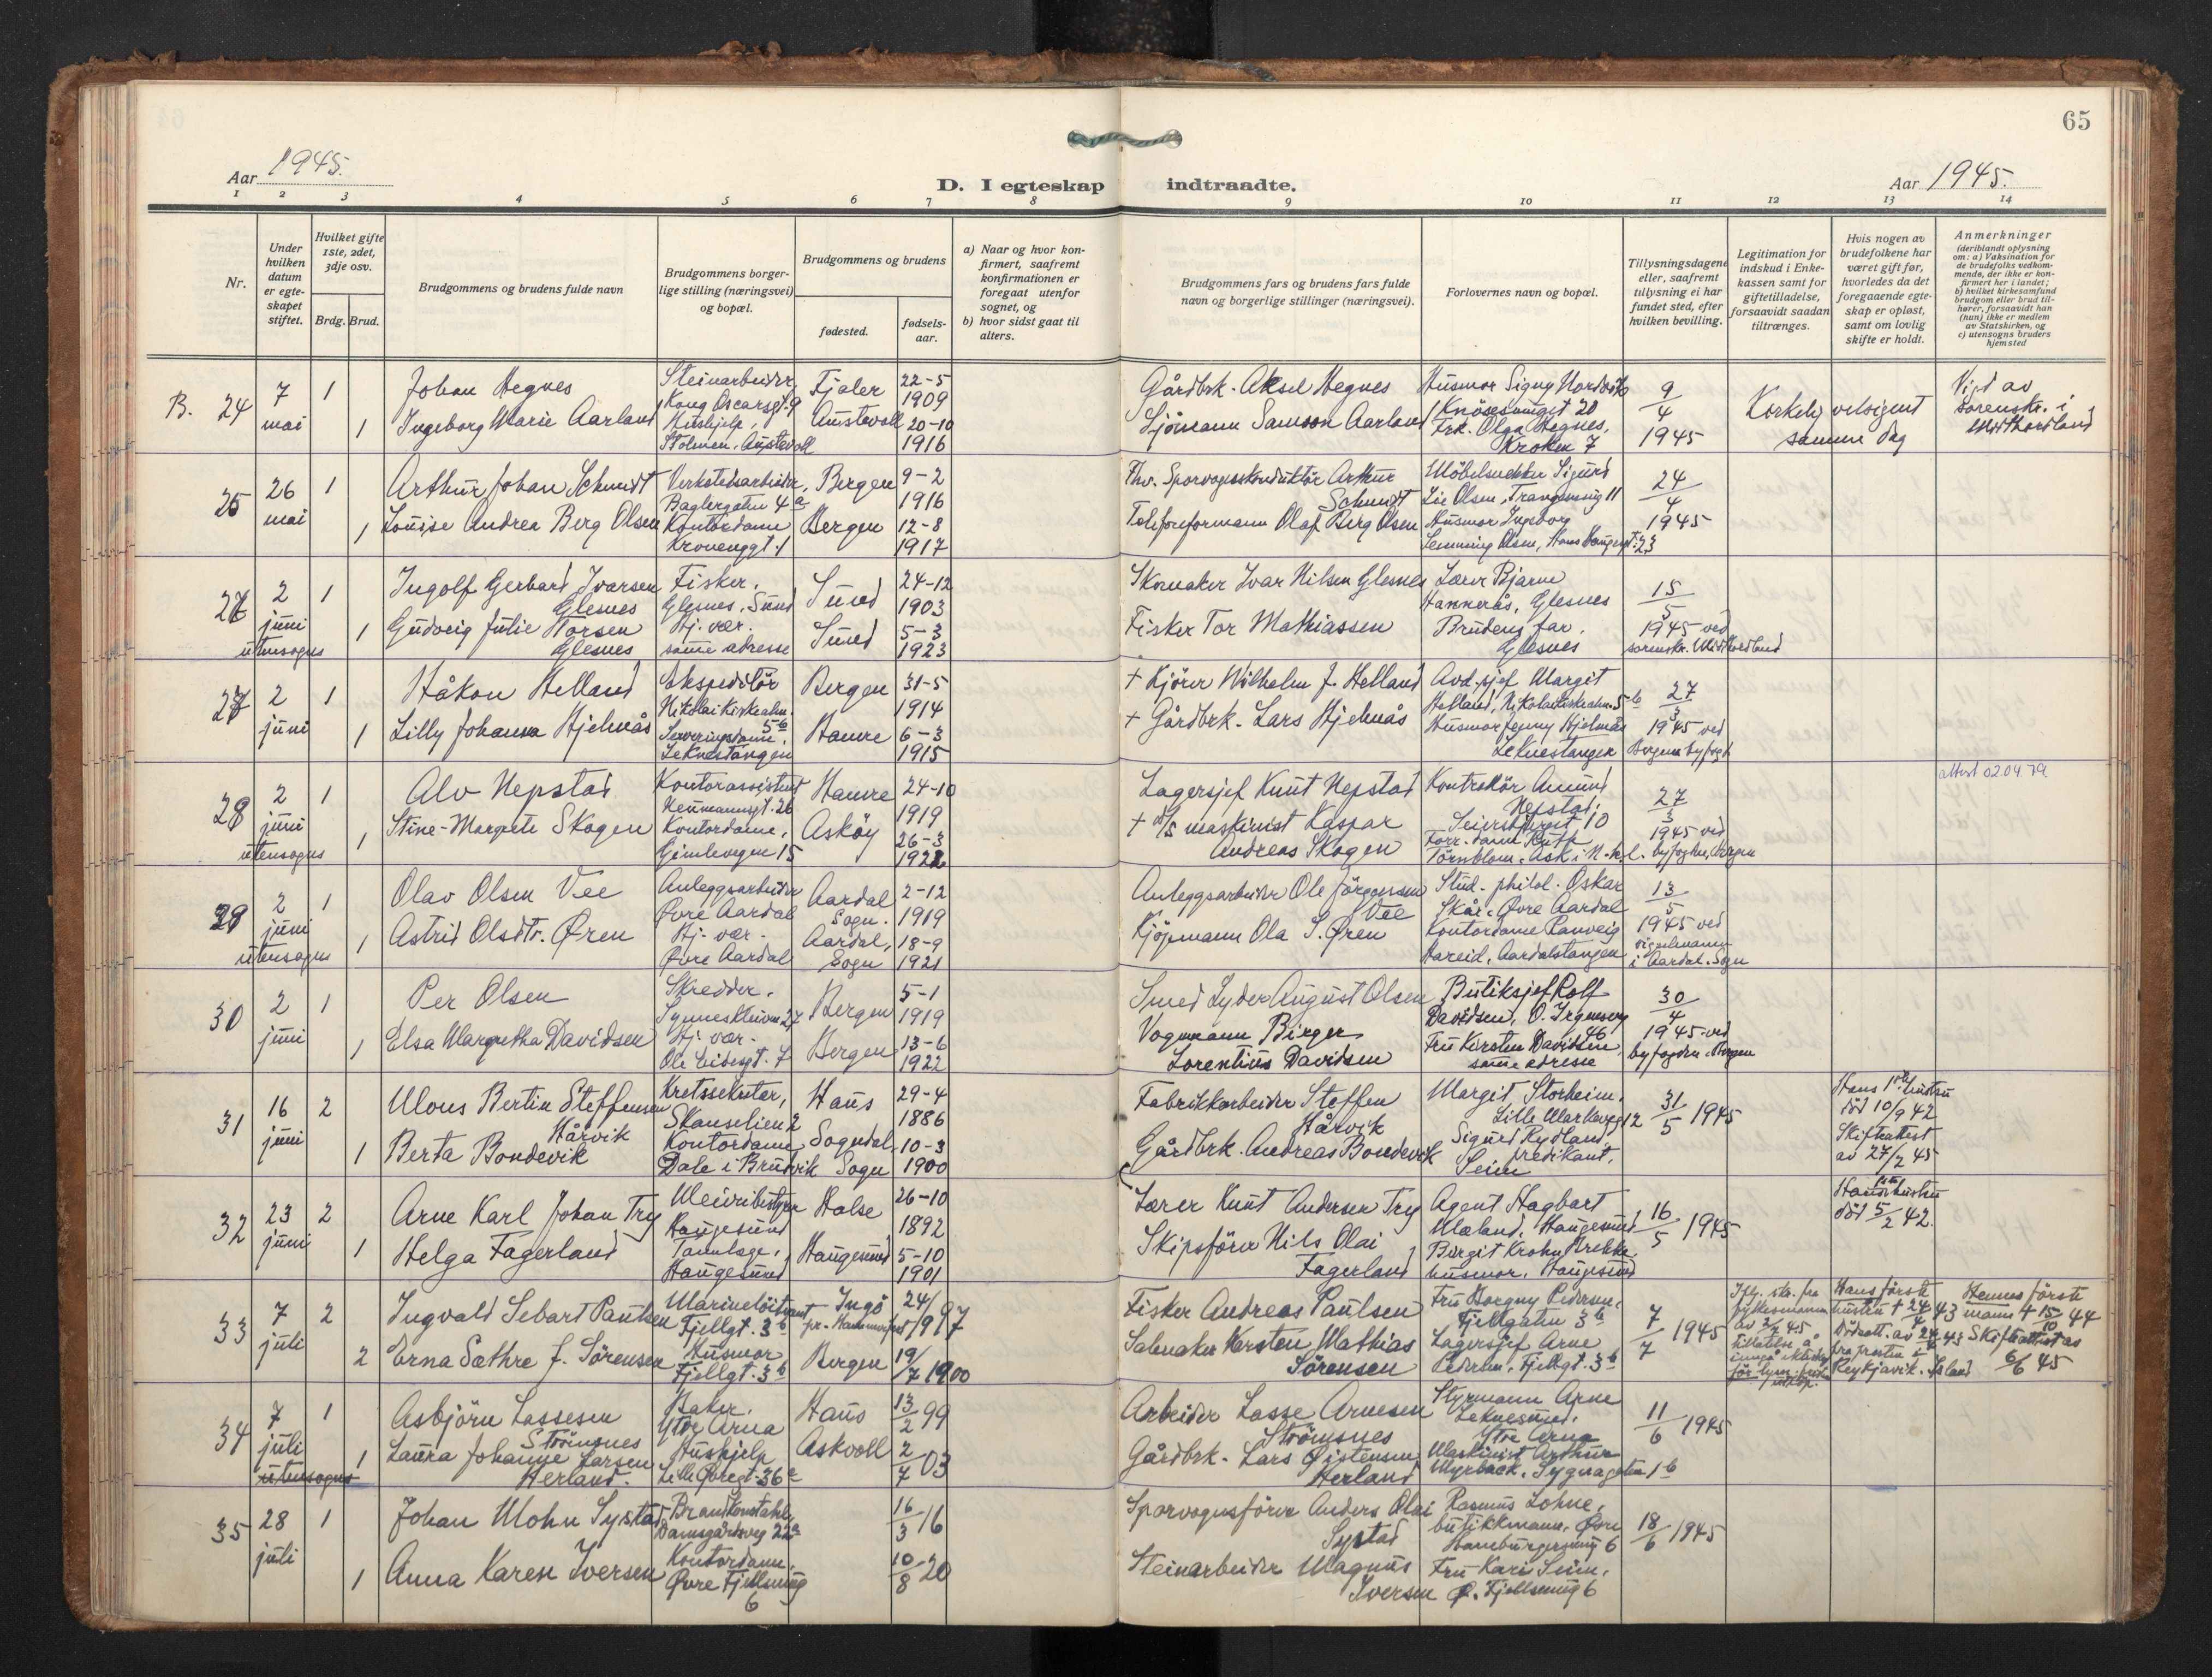 65
Aar 1945.
D. I egteskap indtraadte.
Aar 1945.
1 2 3 4 5 6 7 8 9 10 11 12 13 14
Nr.
Under hvilken datum er egteskapet stiftet.
Hvilket gifte 1ste, 2det, 3dje osv.
Brdg. Brud.
Brudgommens og brudens fulde navn
Brudgommens borgerlige stilling (næringsvei) og bopæl.
Brudgommens og brudens
fødested.
fødselsaar.
a) Naar og hvor konfirmert, saafremt konfirmationen er foregaat utenfor sognet, og
b) hvor sidst gaat til alters.
Brudgommens fars og brudens fars fulde navn og borgerlige stillinger (næringsvei).
Forlovernes navn og bopæl.
Tillysningsdagene eller, saafremt tillysning ei har fundet sted, efter hvilken bevilling.
Legitimation for indskud i Enkekassen samt for giftetilladelse, forsaavidt saadan tiltrænges.
Hvis nogen av brudefolkene har været gift før, hvorledes da det foregaaende egteskap er opløst, samt om lovlig skifte er holdt.
Anmerkninger
(deriblandt oplysning om: a) Vaksination for de brudefolks vedkommende, der ikke er konfirmert her i landet; b) hvilket kirkesamfund brudgom eller brud tilhører, forsaavidt han (hun) ikke er medlem av Statskirken, og c) utensogns bruders hjemsted
B. 24 7 mai 1 Johan Hegnes Steinarbeider, Kong Oscarsgt. 9 Fjaler 22-5 1909 Gårdbrk. Aksel Hegnes Husmor Signy Nordvik, Knösesmuget 20 9/4 1945 Kirkelig velsignet samme dag Vigd av sorenskr. i Midthordland
1 Ingeborg Marie Aarland Hushjelp, Stolmen, Austevoll Austevoll 20-10 1916 Sjömann Samson Aarland Frk. Olga Hegnes, Kroken 7
25 26 mai 1 Arthur Johan Schmidt Verkstedsarbeider, Baglergaten 4a Bergen 9-2 1916 Fhv. Sporvognskonduktör Arthur Schmidt Möbelsnekker Sigurd Lie Olsen, 24/4 1945
1 Louise Andrea Berg Olsen Kontordame Kronenggt. 1 Bergen 12-8 1917 Teleforformann Olaf Berg Olsen Husmor Ingeborg Olsen, Hans Haugesgt. 23
2 juni utensogns 1 Ingolf Gerhard Ivarsen Glesnes Fisker, Glesnes, Sund Sund 24-12 1903 Skomaker Ivar Nilsen Glesnes Lærer Bjarne Hannerås, Glesnes 15/5 1945 ved sorenskr. Midthordland
1 Gudveig Julie Torsen Glesnes Hj. vær. samme adresse Sund 5-3 1923 Fisker Tor Mathiassen Brudens far, Glesnes
27 2 juni 1 Håkon Helland Ekspeditör Nikolaikirkealm. 5b Bergen 31-5 1914 + Kjörer Wilhelm J. Helland Avd. sjef Margit Helland, Nikolaikirkealm. 5b 27/3 1945 ved Bergens byfogd
1 Lilly Johanna Hjelmås Serveringsdame, Leknestangen Hamre 6-3 1915 + Gårdbrk. Lars Hjelmås Husmor Jenny Hjelmås Leknestangen
28 2 juni utensogns 1 Alv Nepstad Kontorassistent Neumannsgt. 26 Hamre 24-10 1919 Lagersjef Knut Nepstad Kontrollör Amund Nepstad, 10 27/3 1945 ved byfogden, Bergen attest 02.04.79
1 Stine-Margrete Skogen Kontordame, Gimlevegen 15 Asköy 26-3 1922 + M/S maskinist Kaspar Andreas Skogen Forr. dame Ruth Törnblom, Ask i N.-h.l.
29 2 juni utensogns 1 Olav Olsen Vee Anleggsarbeider Øvre Aardal Aardal Sogn. 2-12 1919 Anleggsarbeider Ole Jörgensen Vee Stud. philol. Oskar Skår, Øvre Aardal 13/5 1945 ved i Aardal, Sogn
1 Astrid Olsdtr. Øren Hj. vær. Øvre Aardal Aardal, Sogn 18-9 1921 Kjöpmann Ola S. Øren Kontordame Ranveig Hareid, Aardalstangen
30 2 juni 1 Per Olsen Skredder, 27 Bergen 5-1 1919 Smed Lyder August Olsen Butiksjef Rolf Davidsen, O. Irgensveg 46 30/4 1945 ved byfogden i Bergen
1 Elsa Margretha Davidsen Hj. vær. Bergen 13-6 1922 Vognmann Birger Lorentius Davidsen Fru Kirsten Davidsen, samme adresse
31 16 juni 2 Mons Bertin Steffensen Hårvik Kretssekretær, Skanselien 2 Haus 29-4 1886 Fabrikkarbeider Steffen Hårvik Margit Storheim, Lille Markeveg 12 31/5 1945 Hans 1ste hustru död 10/9 42 Skifteattest av 27/2 45
1 Berta Bondevik Kontordame Dale i Bruvik Sogndal, Sogn 10-3 1900 Gårdbrk. Andreas Bondevik Sigurd Rydland, predikant, Seim
32 23 juni 2 Arne Karl Johan Try Meieribestyrer Haugesund Halse 26-10 1892 Lærer Knut Andersen Try Agent Hagbart Mæland, Haugesund 16/5 1945 Hans 1ste hustru död 5/2 42.
1 Helga Fagerland Tannlege, Haugesund Haugesund 5-10 1901 Skipsförer Nils Olai Fagerland Birgit Krohn husmor, Haugesund
33 7 juli 2 Ingvald Sebart Paulsen Marinelöitnant Fjellgt. 3b Ingö pr. Hammerfest 24/9 1917 Fisker Andreas Paulsen Fru Borgny Pedersen, Fjellgaten 3b 7/7 1945 Ifg. skr. fra fylkesmannen av 3/7 45 tillatelse å inngå ekteskap Hans förste hustru + 24/4 43 Dödsatt. av 24/4 43 fra presten i Reykjavik, Island Hennes förste mann + 15/10 44 Skifteattest av 6/6 45
2 Erna Sæthre f. Sörensen Husmor Fjellgt. 3b Bergen 19/7 1900 Salmaker Karsten Mathias Sörensen Lagersjef Arne Pedersen, Fjellgt. 3b
34 7 juli utensogns 1 Asbjörn Lassesen Strömsnes Baker, Ytre Arna Haus 13/2 99 Arbeider Lasse Arnesen Strömsnes Styrmann Arne Leknesund, Ytre Arna 11/6 1945
1 Laura Johanne Larsen Herland. Hushjelp Lille Øvregt. 36a Askvoll 2/7 03 Gårdbrk. Lars Øistensen Herland Maskinist Arthur Myrbæck, 1b
35 28 juli 1 Johan Mohn Systad Brandkonstabel, Damsgårdsveg 22a 16/3 16 Sporvognsförer Anders Olai Systad Rasmus Lohne, butikkmann, Øvre Hamburgersmug 6 18/6 1945
1 Anna Karen Iversen Kontordame, Øvre Fjellsmug 6 10/8 20 Steinarbeider Magnus Iversen Fru Kari Seim, Ø. Fjellsmug 6